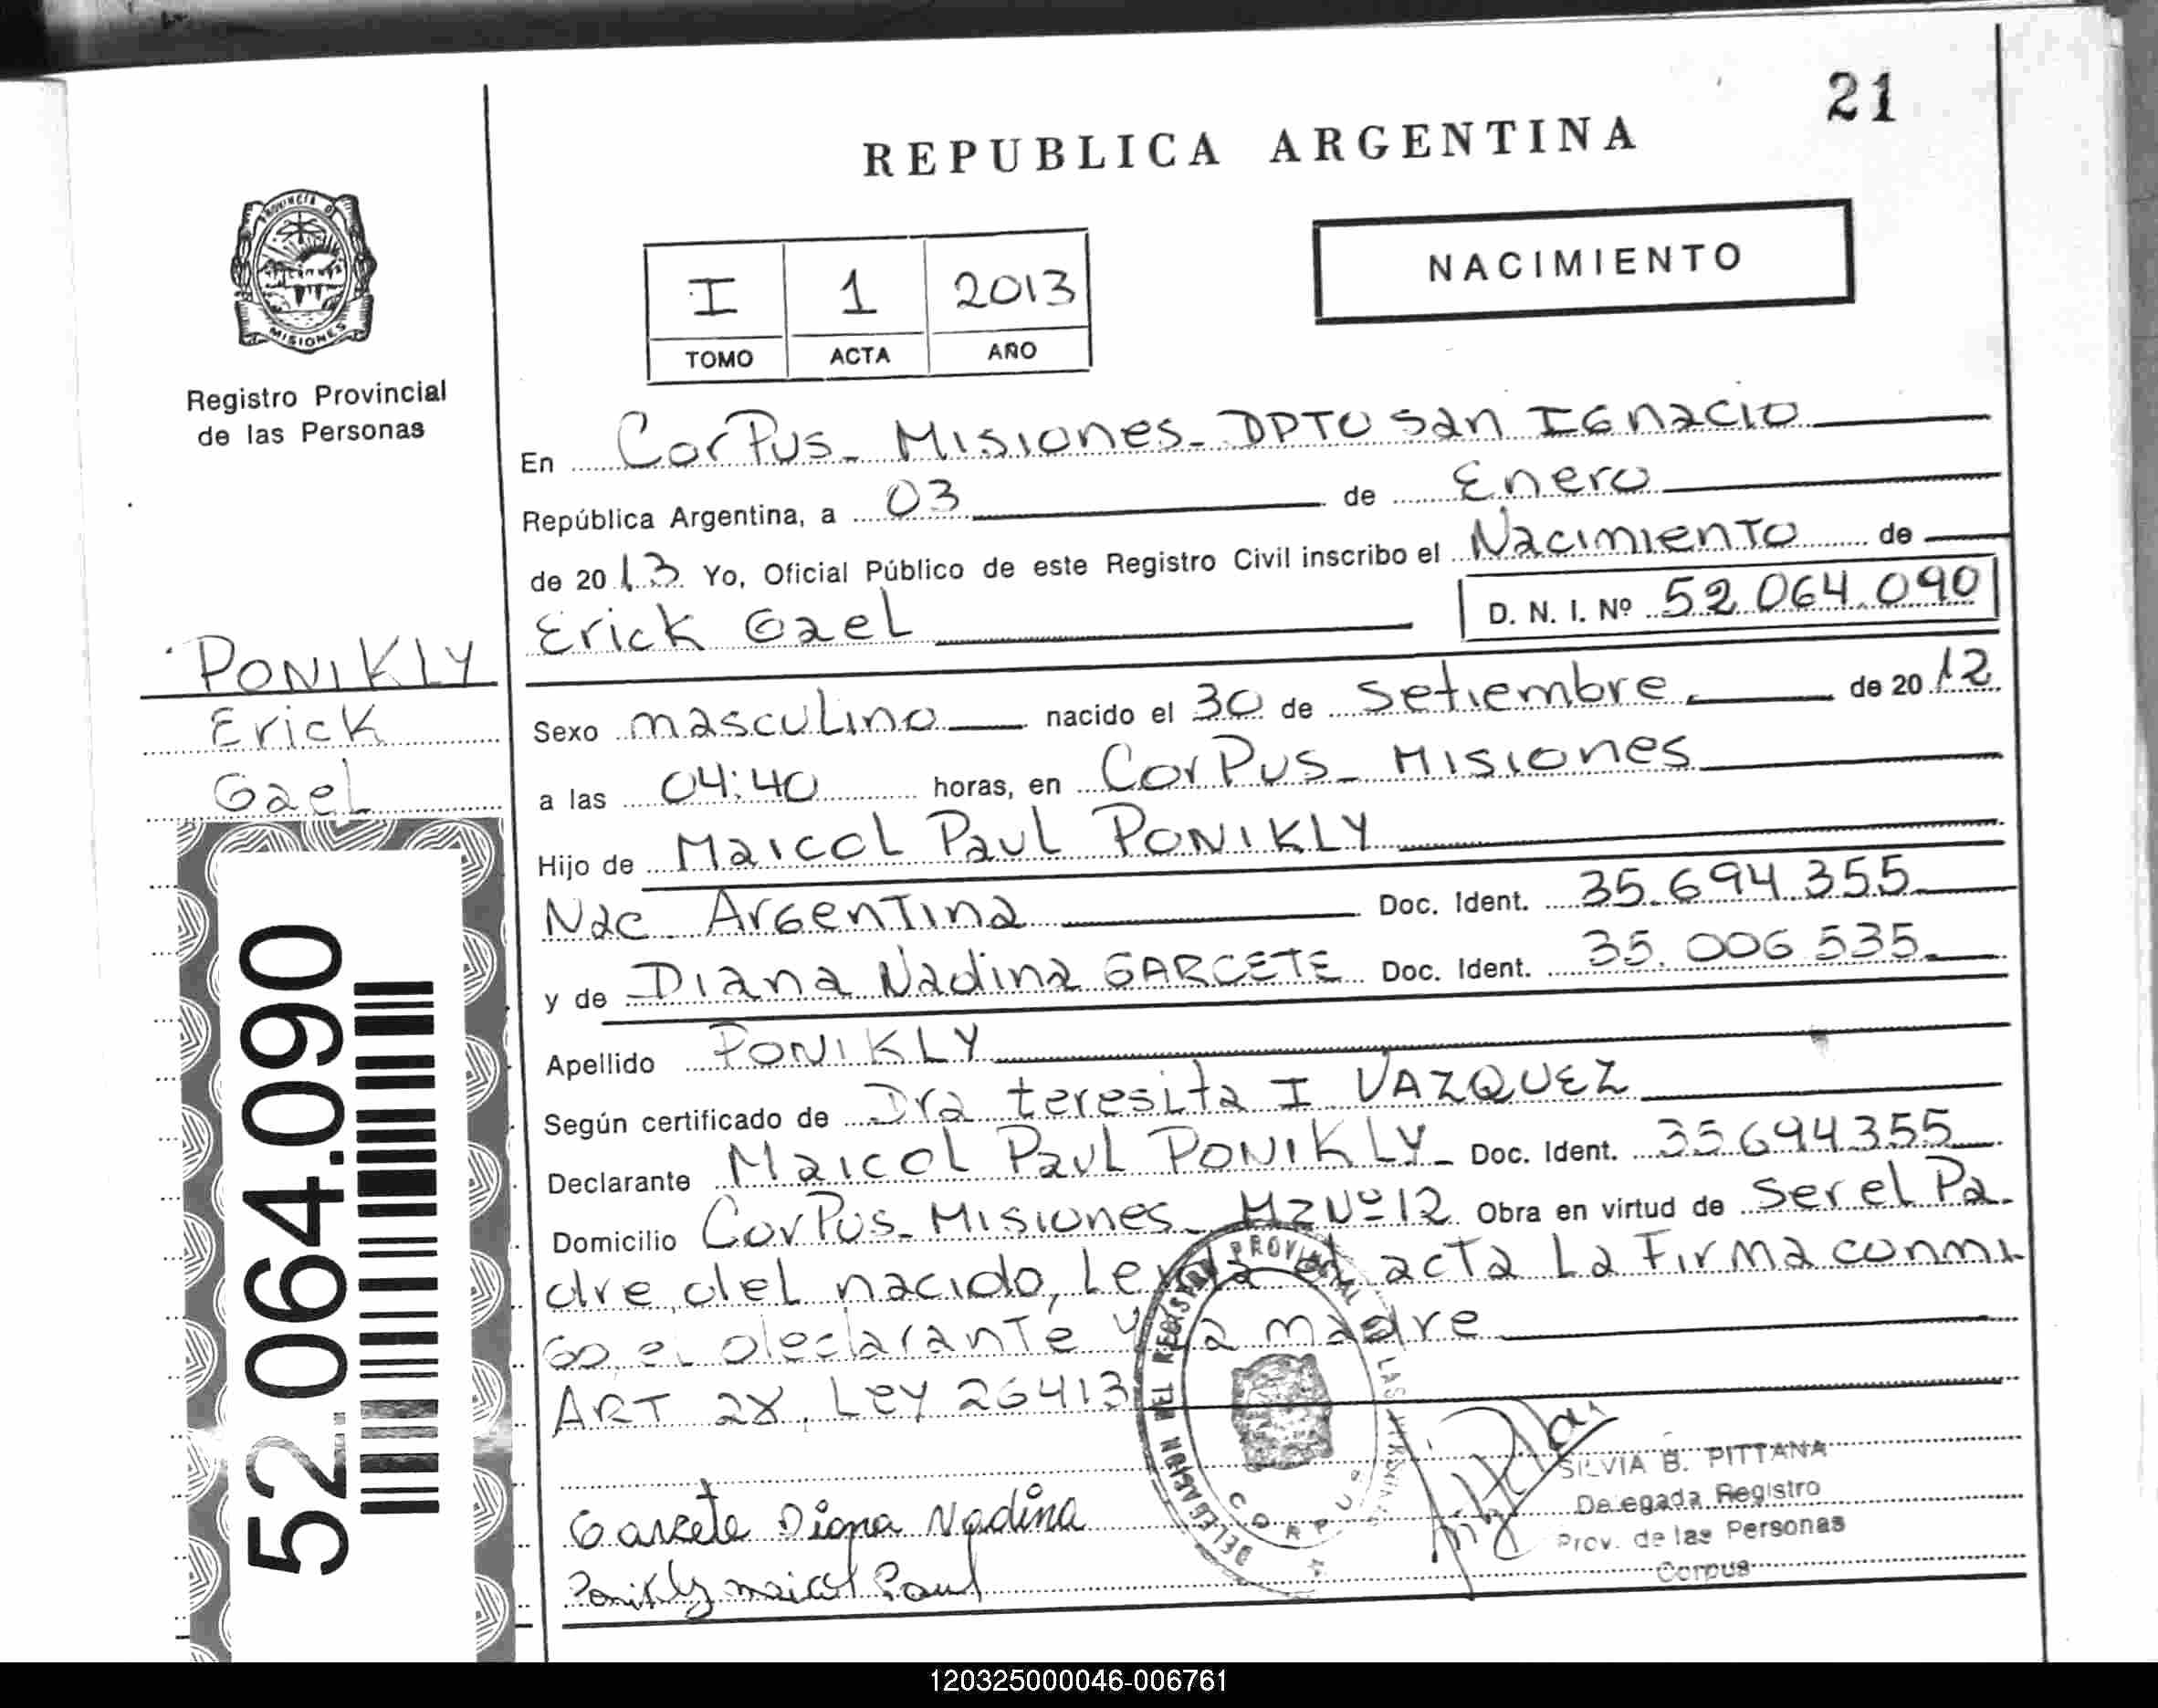 21
REPUBLICA ARGENTINA
PROVINCIA DE
MISIONES
Registro Provincial
de las Personas
I 1 2013
TOMO ACTA AÑO
NACIMIENTO
En Corpus - Misiones - DPTO San Ignacio
República Argentina, a 03 de Enero
de 2013 Yo, Oficial Público de este Registro Civil inscribo el Nacimiento de
Erick Gael D. N. I. Nº 52.064.090
PONIKLY
Erick
Gael
52.064.090
Sexo masculino nacido el 30 de Setiembre de 2012
a las 04:40 horas, en Corpus - Misiones
Hijo de Maicol Paul PONIKLY
Nac Argentina Doc. Ident. 35.694.355
y de Diana Nadina GARCETE Doc. Ident. 35.006.535
Apellido PONIKLY
Según certificado de Dra teresita I VAZQUEZ
Declarante Maicol Paul PONIKLY - Doc. Ident. 35694355
Domicilio Corpus - Misiones - Mz Nº 12 Obra en virtud de Ser el Pa-
dre del nacido, Leida el acta La Firma conmi
go el declarante y la madre
ART 28, Ley 26413
Garcete Diana Nadina
Ponikly maicol Paul
DELEGACION DEL REGISTRO PROVINCIAL DE LAS PERSONAS
CORPUS
SILVIA B. PITTANA
Delegada Registro
Prov. de las Personas
Corpus
120325000046-006761